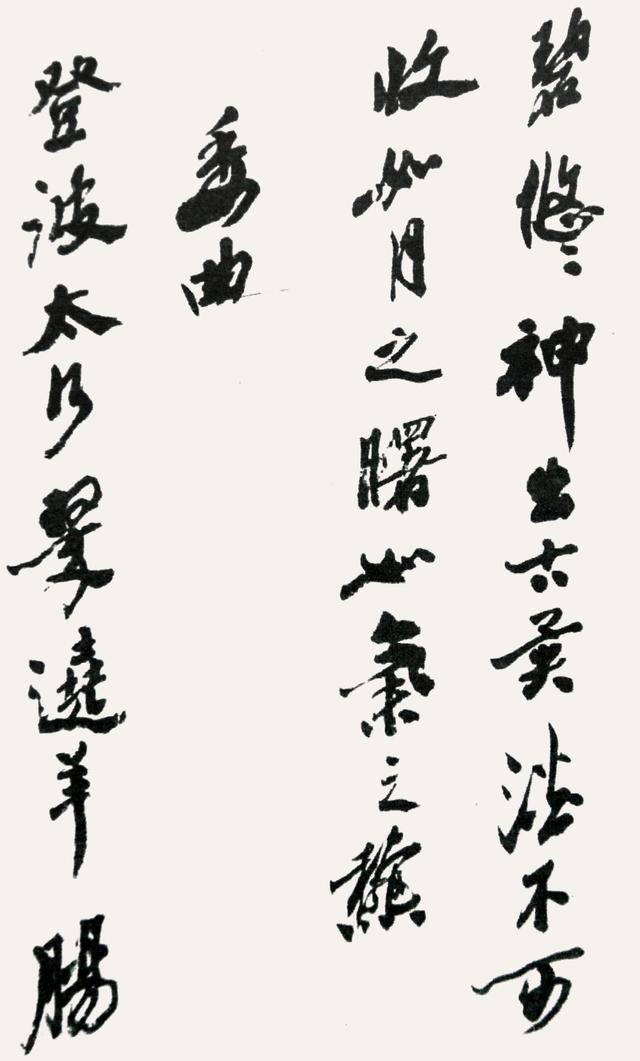 碧悠〻神出古異淡不可
收如月之曙如氣之龝
委曲
登彼太行翠遶羊腸